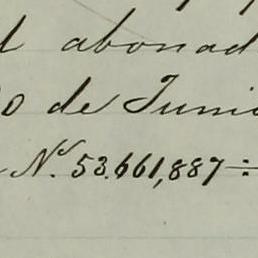 l abonad
0 de Juni
Nº. 53.661,887=